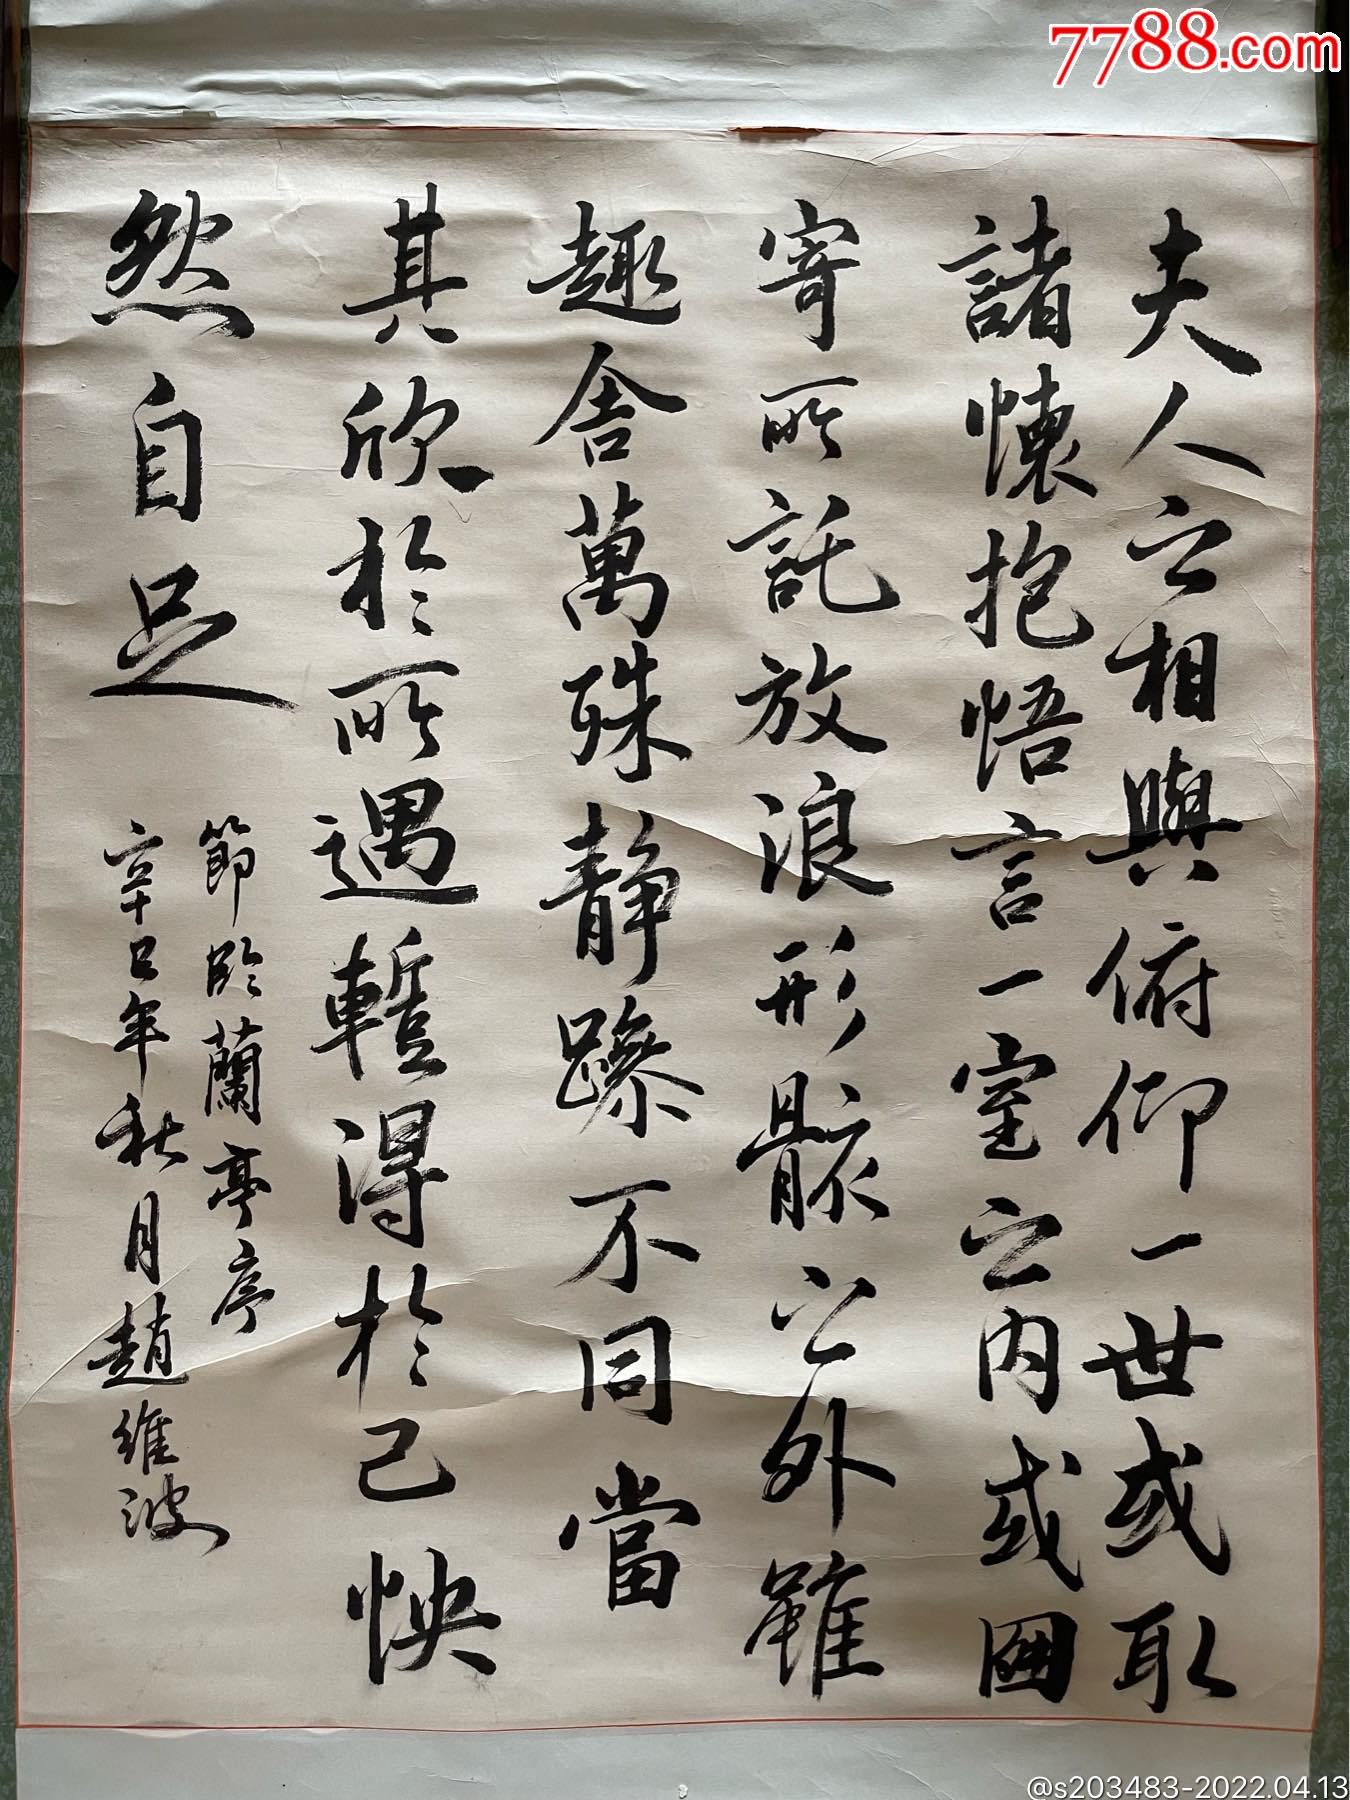 7788.com
夫人之相與俯仰一世或取
諸懷抱悟言一室之內或因
寄所託放浪形骸之外雖
趣舍萬殊靜躁不同當
其欣於所遇暫得於己怏
然自足
節臨蘭亭序
辛巳年秋月趙維波
@s203483-2022.04.13